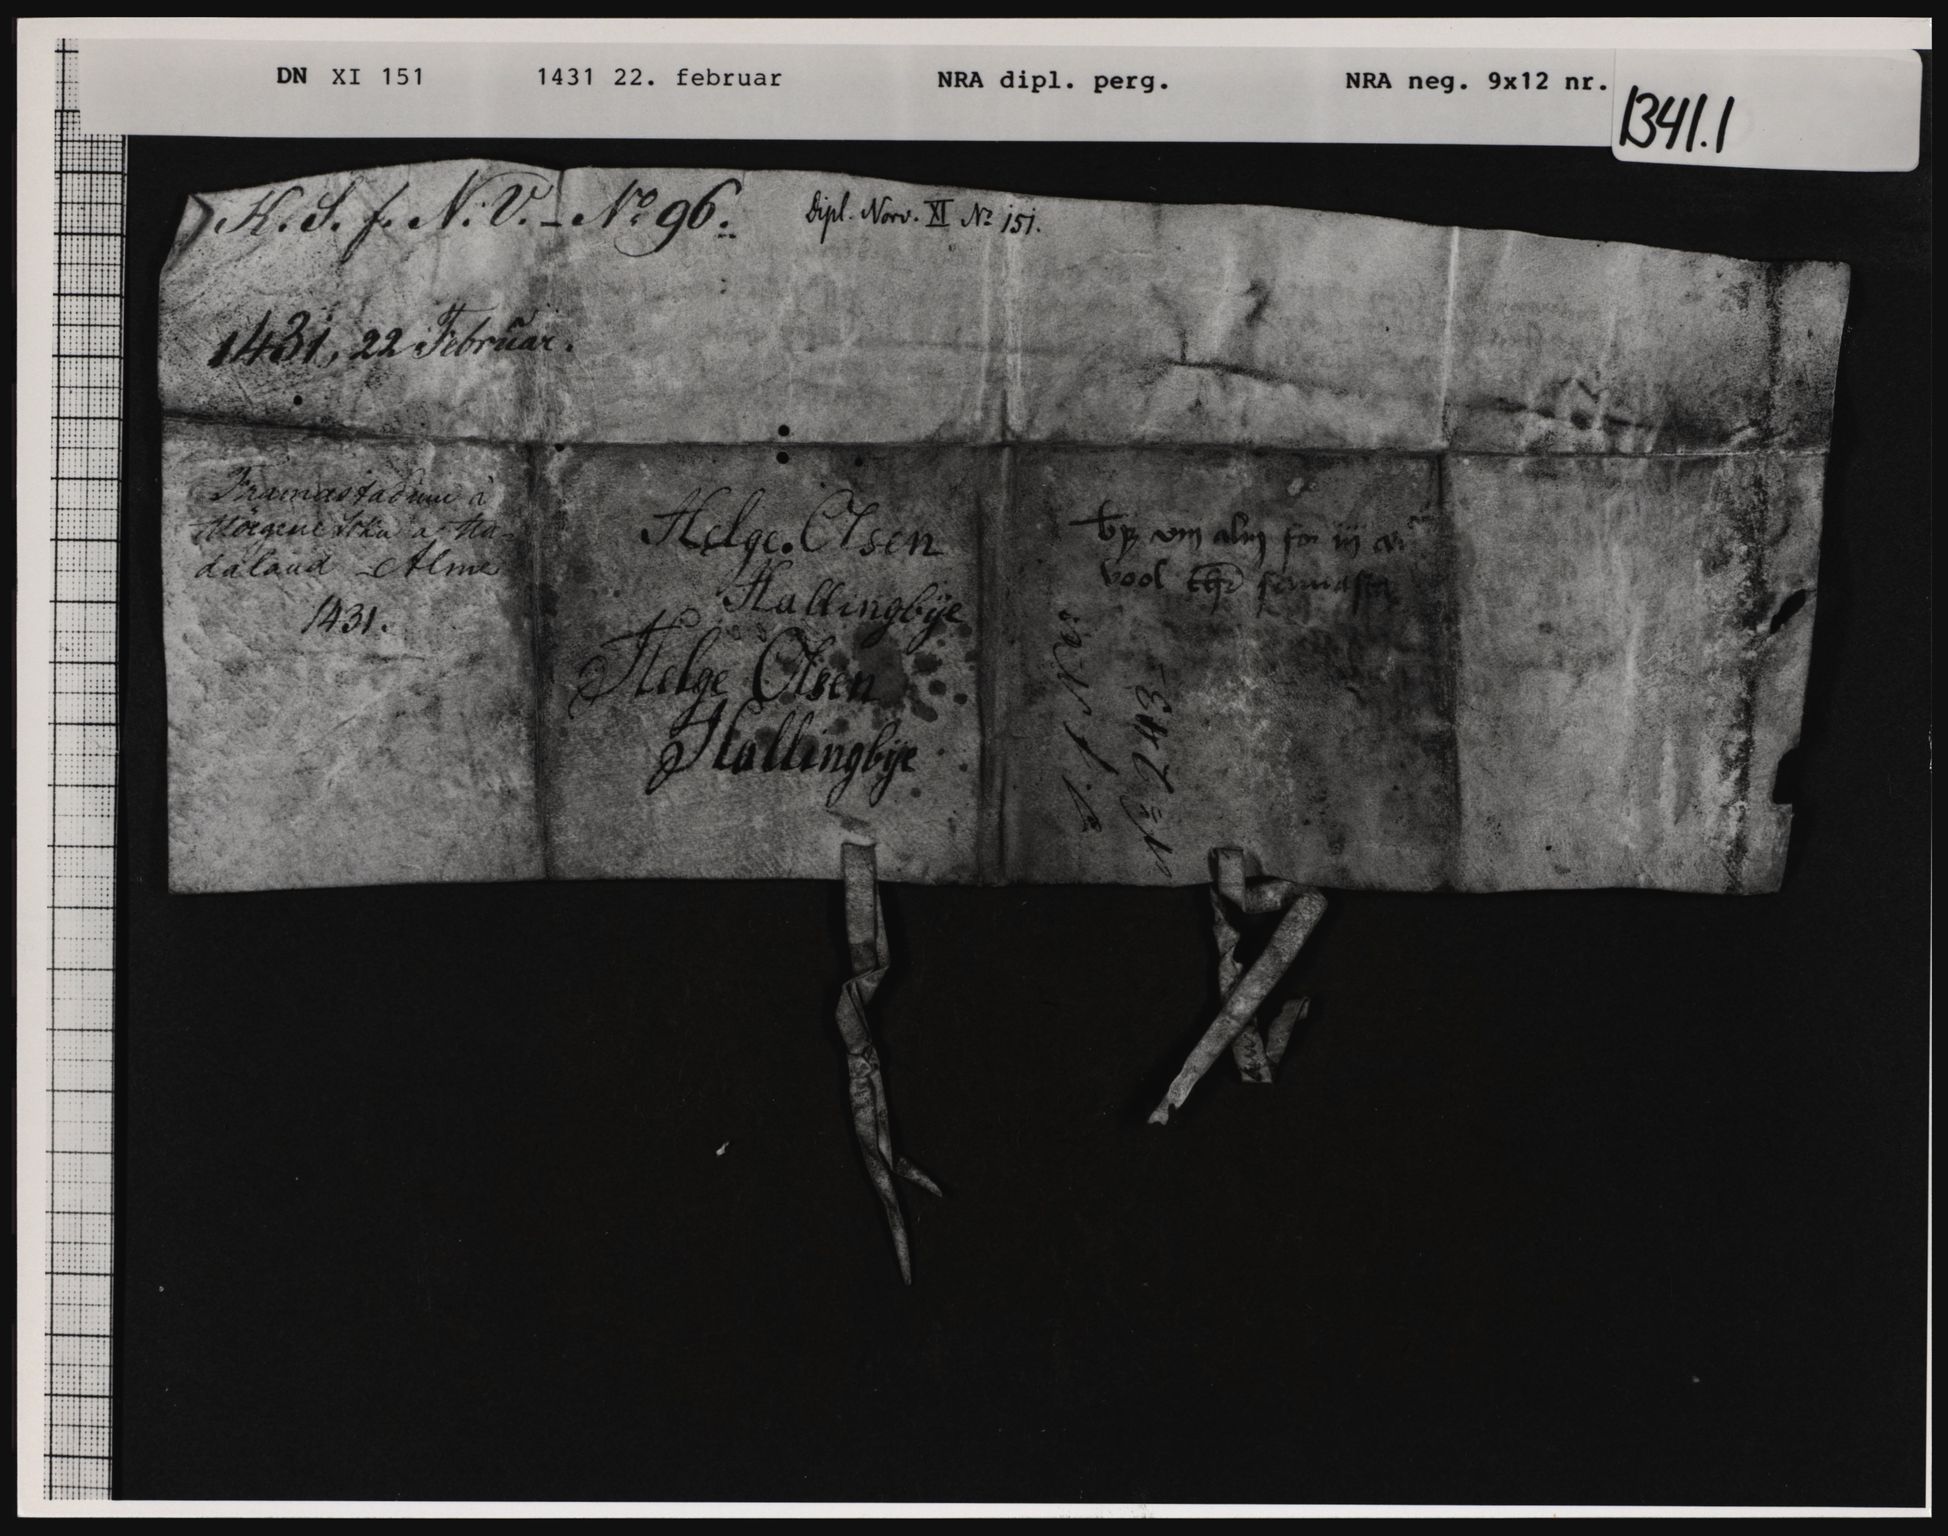 DN XI 151 1431 22. februar NRA dipl. perg. NRA neg. 9x12 nr. 1341.1
K. S. f. N. V. - No 96.
Dipl. Norv. XI No 151.
1431, 22 Februar.
Framastadum à
à Ha-
daland Alme
1431.
Helge. Olsen
Hallingbÿe
Helge Olsen
Hallingbÿe
vm alm for iij
vool
S. f. N. V.
No 243-